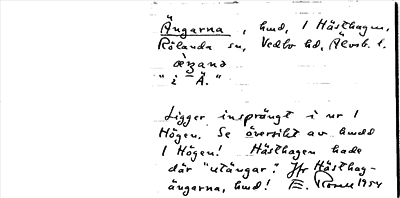 Ängarna, hmd, 1 Hästhagen,
Rölanda sn, Vedbo hd, Älvsb. l.
æŋana
"i Ä."
Ligger insprängt i nr 1
Högen. Se översikt av hmdd
1 Högen! Hästhagen hade
där "utängar." Jfr Hästhag-
ängarna, hmd! E. 1954